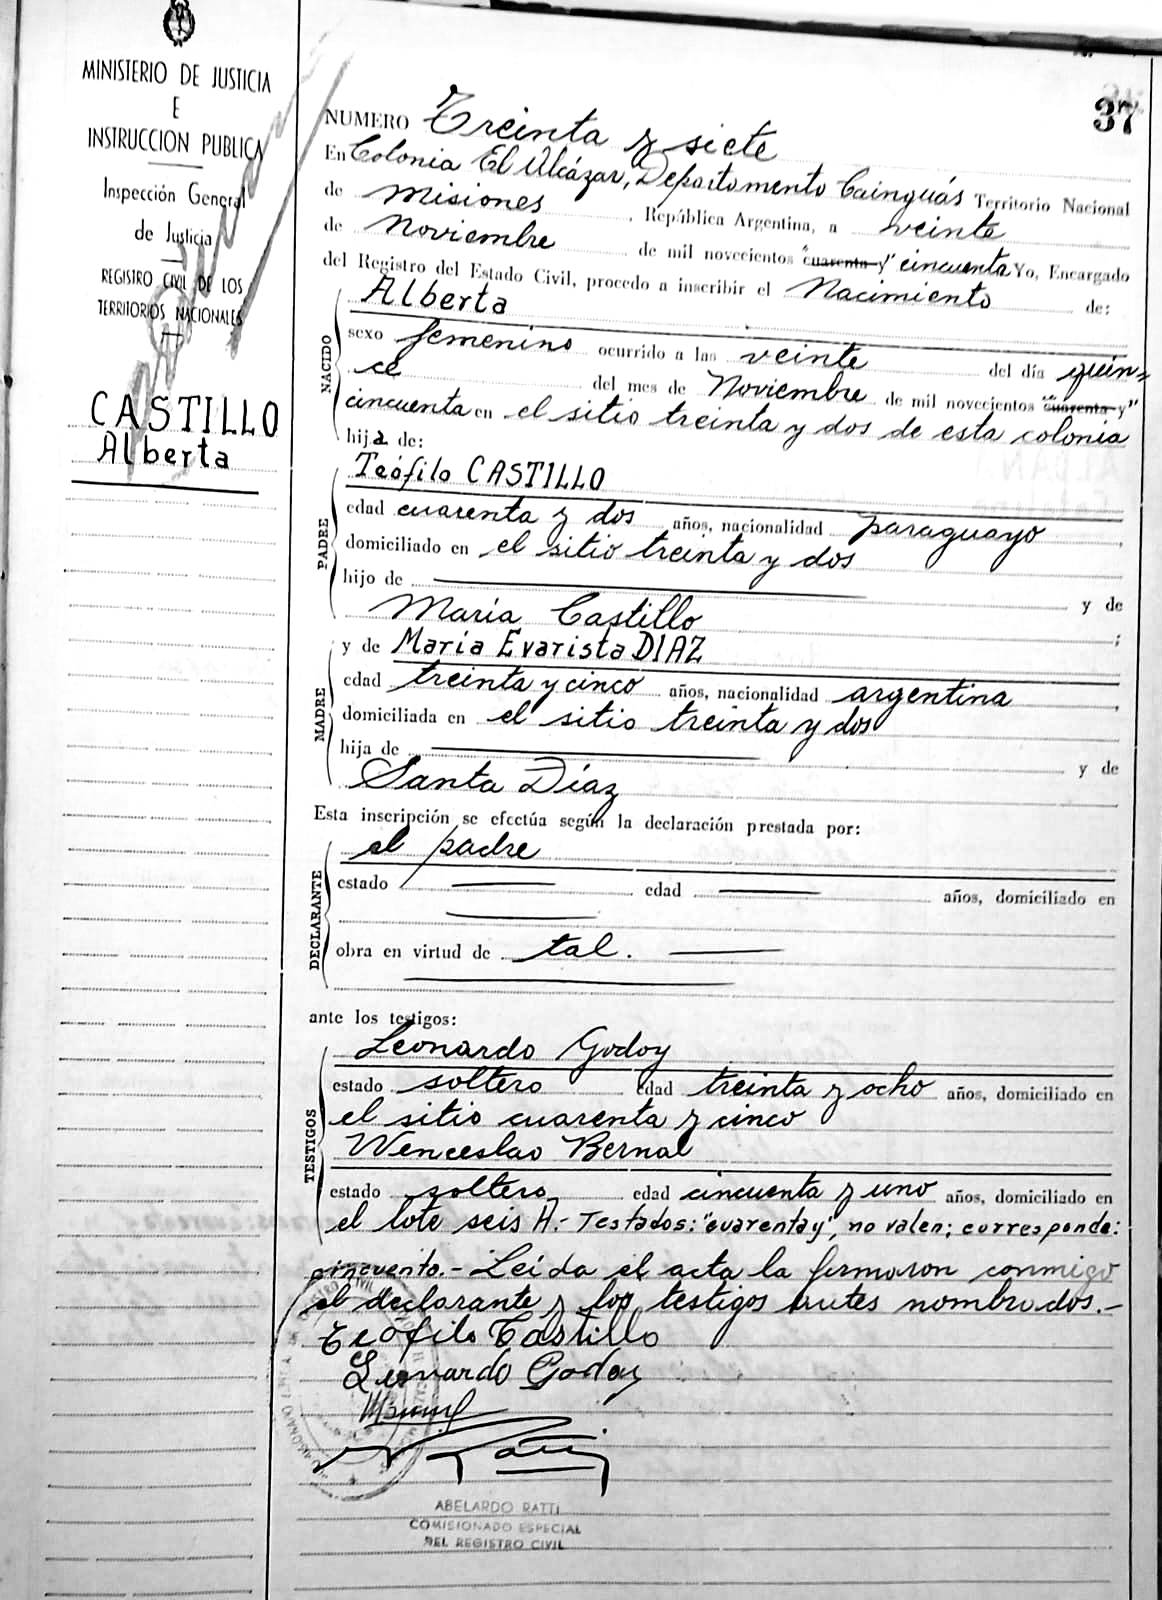 MINISTERIO DE JUSTICIA
E
INSTRUCCION PUBLICA
Inspección General
de Justicia
REGISTRO CIVIL DE LOS
TERRITORIOS NACIONALES
CASTILLO
Alberta
37
NUMERO Treinta y siete
En Colonia El Alcázar, Departamento Cainguás Territorio Nacional
de Misiones, República Argentina, a veinte
de Noviembre de mil novecientos "cuarenta y" cincuenta Yo, Encargado
del Registro del Estado Civil, procedo a inscribir el Nacimiento de:
NACIDO
Alberta
sexo femenino ocurrido a las veinte del día quin=
ce del mes de Noviembre de mil novecientos "cuarenta y"
cincuenta en el sitio treinta y dos de esta colonia
hija de:
PADRE
Teófilo CASTILLO
edad cuarenta y dos años, nacionalidad paraguayo,
domiciliado en el sitio treinta y dos
hijo de y de
María Castillo;
MADRE
y de María Evarista DIAZ
edad treinta y cinco años, nacionalidad argentina,
domiciliada en el sitio treinta y dos
hija de y de
Santa Díaz
Esta inscripción se efectúa según la declaración prestada por:
DECLARANTE
el padre
estado edad años, domiciliado en
obra en virtud de tal.
ante los testigos:
TESTIGOS
Leonardo Godoy
estado soltero edad treinta y ocho años, domiciliado en
el sitio cuarenta y cinco
Wenceslao Bernal
estado soltero edad cincuenta y uno años, domiciliado en
el lote seis A.- Testados: "cuarenta y", no valen; corresponde:
cincuenta.- Leída el acta la firmaron conmigo
el declarante y los testigos antes nombrados.-
Teófilo Castillo
Leonardo Godoy
ABELARDO RATTI
COMISIONADO ESPECIAL
DEL REGISTRO CIVIL